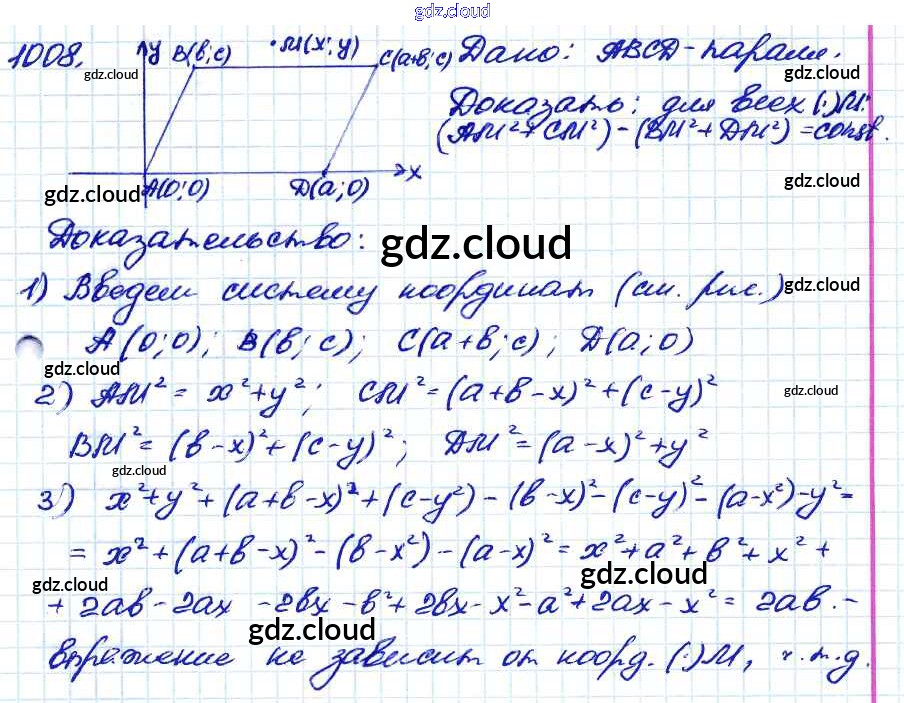 gdz.cloud
1008.
y B(в;c) ·M(x;y) C(a+в;c)
A(0;0) D(a;0) x
Дано: ABCD-паралл.
Доказать: для всех (·)M:
(AM²+CM²)-(BM²+DM²)=const.
gdz.cloud
gdz.cloud
gdz.cloud
gdz.cloud
gdz.cloud
Доказательство:
gdz.cloud
1) Введем систему координат (см. рис.)
gdz.cloud
A(0;0); B(в;c); C(a+в;c); D(a;0)
gdz.cloud
2) AM² = x²+y²; CM²=(a+в-x)²+(c-y)²
gdz.cloud
BM²=(в-x)²+(c-y)²; DM²=(a-x)²+y²
gdz.cloud
3) x²+y²+(a+в-x)²+(c-y²)-(в-x)²-(c-y)²-(a-x²)-y²=
= x²+(a+в-x)²-(в-x²)-(a-x)²=x²+a²+в²+x²+
gdz.cloud
gdz.cloud
+2aв-2ax-2вx-в²+2вx-x²-a²+2ax-x²=2aв.-
gdz.cloud
выражение не зависит от коорд. (·)M, ч.т.д.